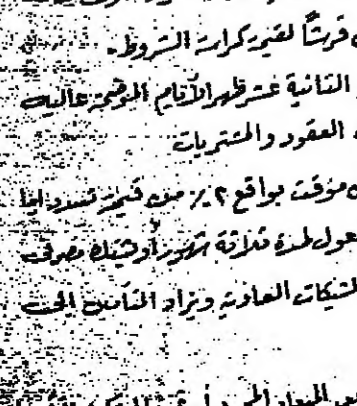 قرشاً لقيمة كراسة الشروط .
الثانية عشر ظهر الأيام الموضحة عاليه
العقود والمشتريات
مؤقت بواقع ٢٪ من قيمة تسدد اما
لمدة ثلاثة شهور أو شيك مصرفى
الشيكات العادية ويزاد التأمين الى